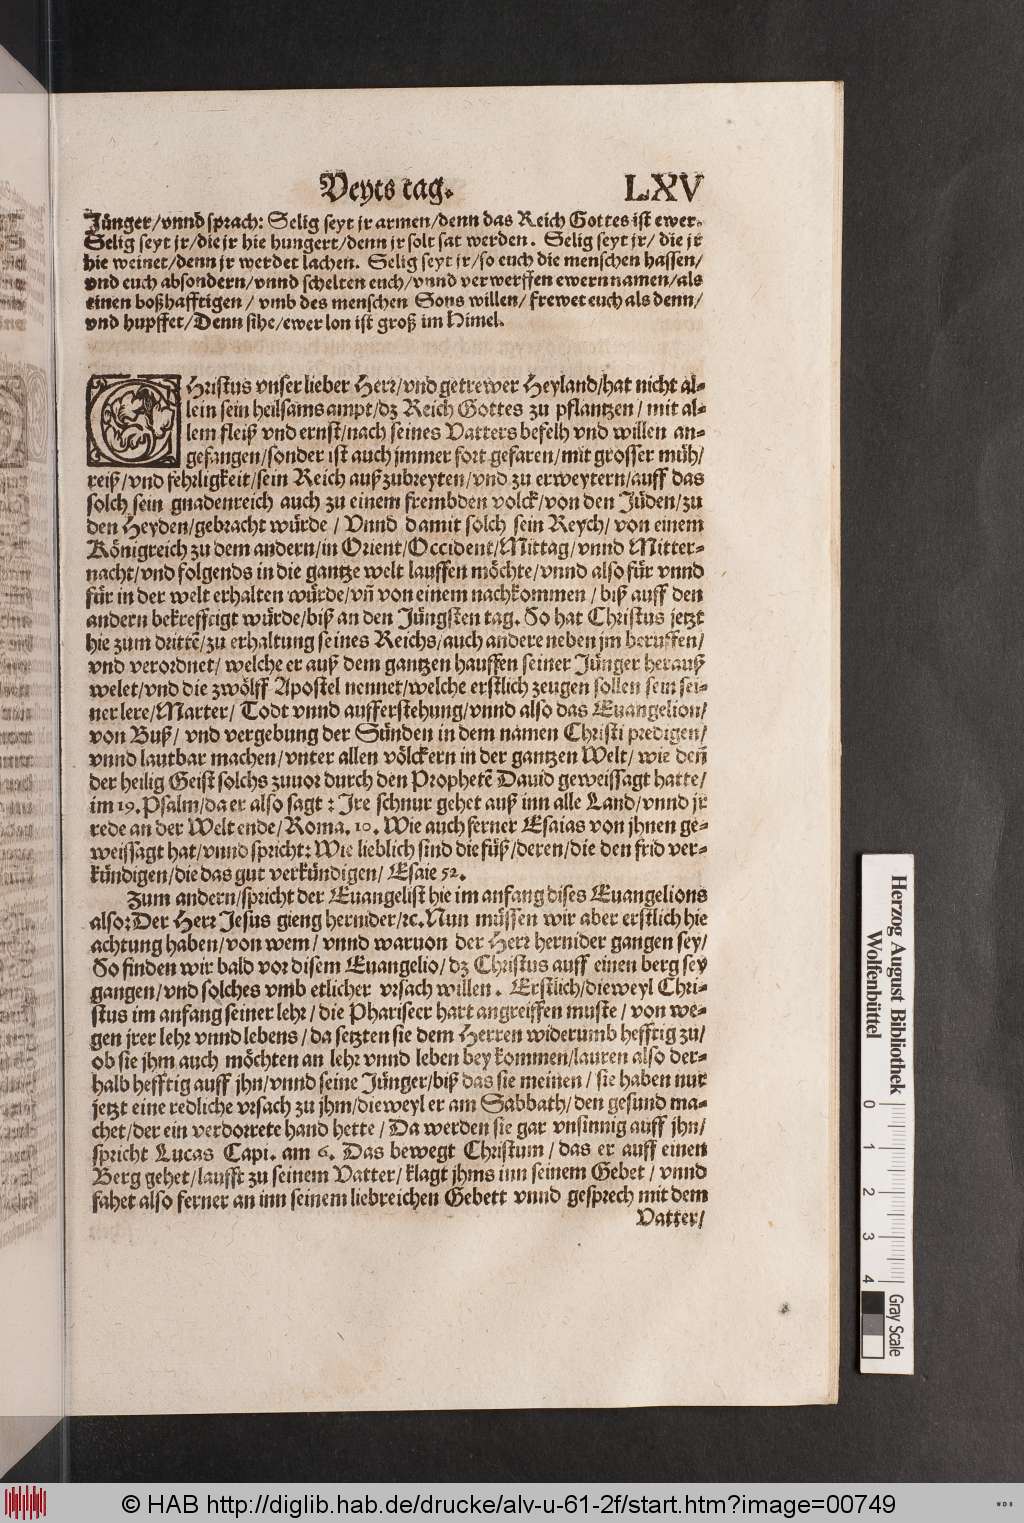 Veyts tag. LXV
Jünger/vnnd sprach: Selig seyt jr armen/denn das Reich Gottes ist ewer.
Selig seyt jr/die jr hie hungert/denn jr solt sat werden. Selig seyt jr/ die jr
hie weinet/denn jr werdet lachen. Selig seyt jr/so euch die menschen hassen/
vnd euch absondern/vnnd schelten euch/vnnd verwerffen ewern namen/als
einen boßhafftigen / vmb des menschen Sons willen/ frewet euch als denn/
vnd hupffet/Denn sihe/ewer lon ist groß im Himel.
CHristus vnser lieber Herr/vnd getrewer Heyland/hat nicht al-
lein sein heilsams ampt/dz Reich Gottes zu pflantzen / mit al-
lem fleiß vnd ernst/nach seines Vatters befelh vnd willen an-
gefangen/sonder ist auch jmmer fort gefaren/mit grosser müh/
reiß/vnd fehrligkeit/sein Reich außzubreyten/vnd zu erweytern/auff das
solch sein gnadenreich auch zu einem frembden volck/von den Jüden/zu
den Heyden/gebracht würde / Vnnd damit solch sein Reych/ von einem
Königreich zu dem andern/in Orient/Occident/Mittag/vnnd Mitter-
nacht/vnd folgends in die gantze welt lauffen möchte/vnnd also für vnnd
für in der welt erhalten würde/vñ von einem nachkommen / biß auff den
andern bekrefftigt würde/biß an den Jüngsten tag. So hat Christus jetzt
hie zum drittẽ/zu erhaltung seines Reichs/auch andere neben jm beruffen/
vnd verordnet/ welche er auß dem gantzen hauffen seiner Jünger herauß
welet/vnd die zwölff Apostel nennet/welche erstlich zeugen sollen sein sei-
ner lere/Marter/ Todt vnnd aufferstehung/vnnd also das Euangelion/
von Buß/ vnd vergebung der Sünden in dem namen Christi predigen/
vnnd lautbar machen/vnter allen völckern in der gantzen Welt/ wie deñ
der heilig Geist solchs zuuor durch den Prophetẽ Dauid geweissagt hatte/
im 19. Psalm/da er also sagt : Jre schnur gehet auß inn alle Land/vnnd jr
rede an der Welt ende/Roma. 10. Wie auch ferner Esaias von jhnen ge-
weissagt hat/vnnd spricht: Wie lieblich sind die füß/deren/die den frid ver-
kündigen/die das gut verkündigen/ Esaie 52.
Zum andern/spricht der Euangelist hie im anfang dises Euangelions
also: Der Herr Jesus gieng hernider/ꝛc. Nun müssen wir aber erstlich hie
achtung haben/von wem/ vnnd waruon der Herr hernider gangen sey/
So finden wir bald vor disem Euangelio/dz Christus auff einen berg sey
gangen/vnd solches vmb etlicher vrsach willen. Erstlich/dieweyl Chri-
stus im anfang seiner lehr / die Phariseer hart angreiffen muste / von we-
gen jrer lehr vnnd lebens / da setzten sie dem Herren widerumb hefftig zu/
ob sie jhm auch möchten an lehr vnnd leben bey kommen/lauren also der-
halb hefftig auff jhn/vnnd seine Jünger/biß das sie meinen / sie haben nur
jetzt eine redliche vrsach zu jhm/dieweyl er am Sabbath/ den gesund ma-
chet/der ein verdorrete hand hette / Da werden sie gar vnsinnig auff jhn/
spricht Lucas Capi. am 6. Das bewegt Christum / das er auff einen
Berg gehet/laufft zu seinem Vatter/ klagt jhms inn seinem Gebet / vnnd
fahet also ferner an inn seinem liebreichen Gebett vnnd gesprech mit dem
Vatter/
Herzog August Bibliothek
Wolfenbüttel
0 1 2 3 4
Gray Scale
© HAB http://diglib.hab.de/drucke/alv-u-61-2f/start.htm?image=00749